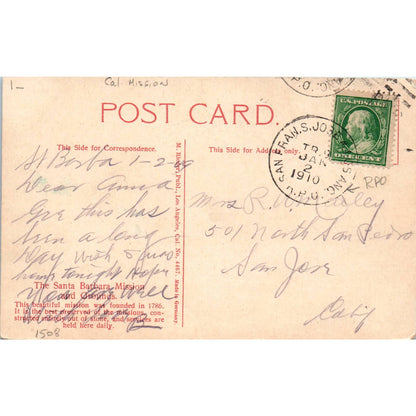 1-
Cal. Mission
POST CARD.
This Side for Correspondence.
This Side for Address only.
M. Rieder, Publ., Los Angeles, Cal. No. 4467. Made in Germany.
SAN FRAN. S. JOSE
TR.
JAN
2
1910
R.P.O.
RPO
St Barba 1-2-09
Dear Anna
Gee this has
been a long
Day wish I was
home tonight Hope
You are Well
Mrs R.
501 North San Pedro
San Jose
Calif
The Santa Barbara Mission
and Grounds.
This beautiful mission was founded in 1786.
It is the best preserved of the missions, con-
structed entirely out of stone, and services are
held here daily.
1508